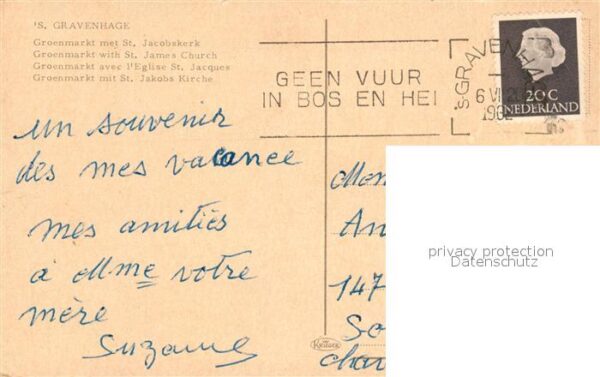 'S. GRAVENHAGE
Groenmarkt met St. Jacobskerk
Groenmarkt with St. James Church
Groenmarkt avec l'Eglise St. Jacques
Groenmarkt mit St. Jakobs Kirche
GEEN VUUR
IN BOS EN HEI
'S GRAVENHA
6 VI
1962
20 C
NEDERLAND
un souvenir
des mes vacance
mes amitiés
à Mme votre
mère
Suzanne
An
147
So
privacy protection
Datenschutz